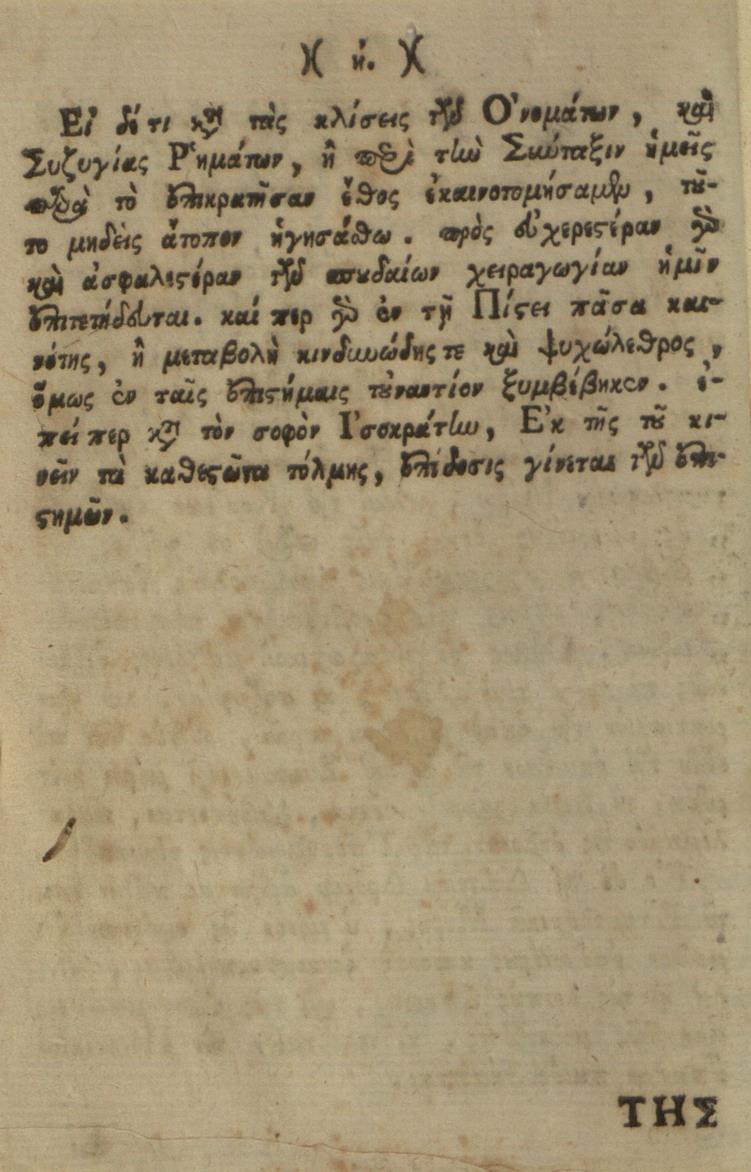 )( ή. )(
Εἰ δέ τι κατὰ τὰς κλίσεις τῶν Ὀνομάτων, καὶ
Συζυγίας Ῥημάτων, ἢ περὶ τὴν Σιώταξιν ἡμεῖς
παρὰ τὸ ἐπικρατῆσαν ἔθος ἐκαινοτομήσαμεν, τοῦ-
το μηδεὶς ἄτοπον ἡγησάσθω. πρὸς εὐχερεστέραν γὰρ
καὶ ἀσφαλεστέραν τῶν σπουδαίων χειραγωγίαν ἡμῖν
ἐπιτετήδευται. καί περ γὰρ ἐν τῇ Πίστει πᾶσα και-
νότης, ἢ μεταβολὴ κινδυνώδης τε καὶ ψυχώλεθρος,
ὅμως ἐν ταῖς ἐπιστήμαις τοὐναντίον ξυμβέβηκεν. ἐ-
πεί περ κατὰ τὸν σοφὸν Ἰσοκράτην, Ἐκ τῆς τοῦ κι-
νεῖν τὰ καθεστῶτα τόλμης, ἐπίδοσις γίνεται τῶν ἐπι-
στημῶν.
ΤΗΣ